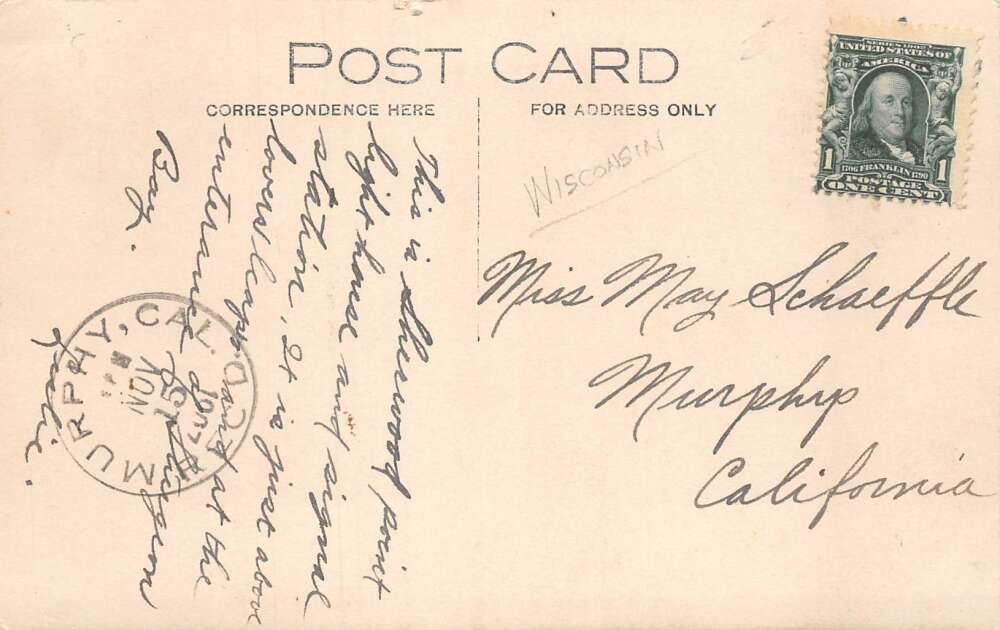 POST CARD
CORRESPONDENCE HERE
FOR ADDRESS ONLY
This is Sherwood point
light house and signal
station. It is just above
lovers leaps and at the
enterance of Sturgeon
Bay.
Julie.
WISCONSIN
SERIES 1902
UNITED STATES OF
AMERICA
1706 FRANKLIN 1790
POSTAGE
1 ONE CENT 1
Miss May Schaeffle
Murphys
California
MURPHY, CAL.
NOV
15
REC'D